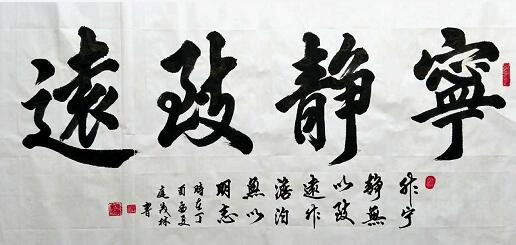 寧靜致遠
非宁
静無
以致
遠非
澹泊
無以
明志
時在丁
酉夏
茂林
書